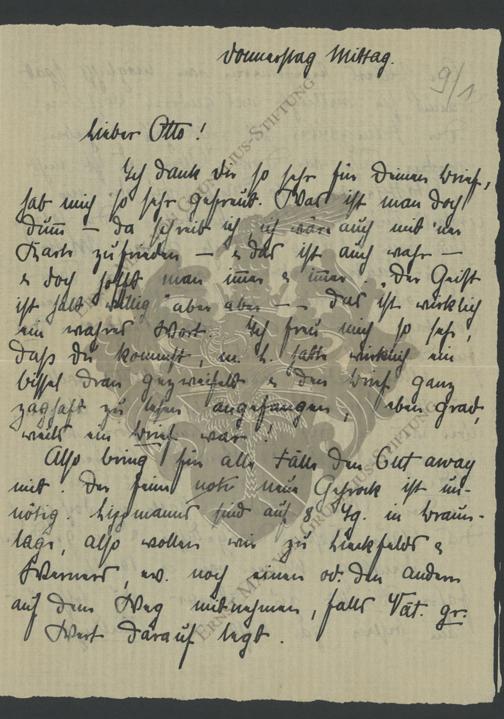 Donnerstag Mittag.
9/1
Lieber Otto!
Ich dank dir so sehr für deinen Brief,
hab mich so sehr gefreut. Was ist man doch
dum̄ – da schreib ich ich wäre auch mit 'ner
Karte zufrieden – & das ist auch wahr –
& doch hofft man im̄er & im̄er. „Der Geist
ist halt willig" aber aber – – das ist wirklich
ein wahres Wort. Ich freu mich so sehr,
daß du kommst, m. L. hatte wirklich ein
bissel dran gezweifelt & den Brief ganz
zaghaft zu lesen angefangen, eben grad,
weils ein Brief war!
Also bring für alle Fälle den Cut away
mit. Der feine neue Gehrock ist un-
nötig. Lippmanns sind auf 8 Tg. in Braun-
lage, also wollen wir zu &
Werners, ev. noch einen od. den andern
auf dem Weg mitnehmen, falls Vat. gr.
Wert darauf legt.
ERNST MAX
STIFTUNG